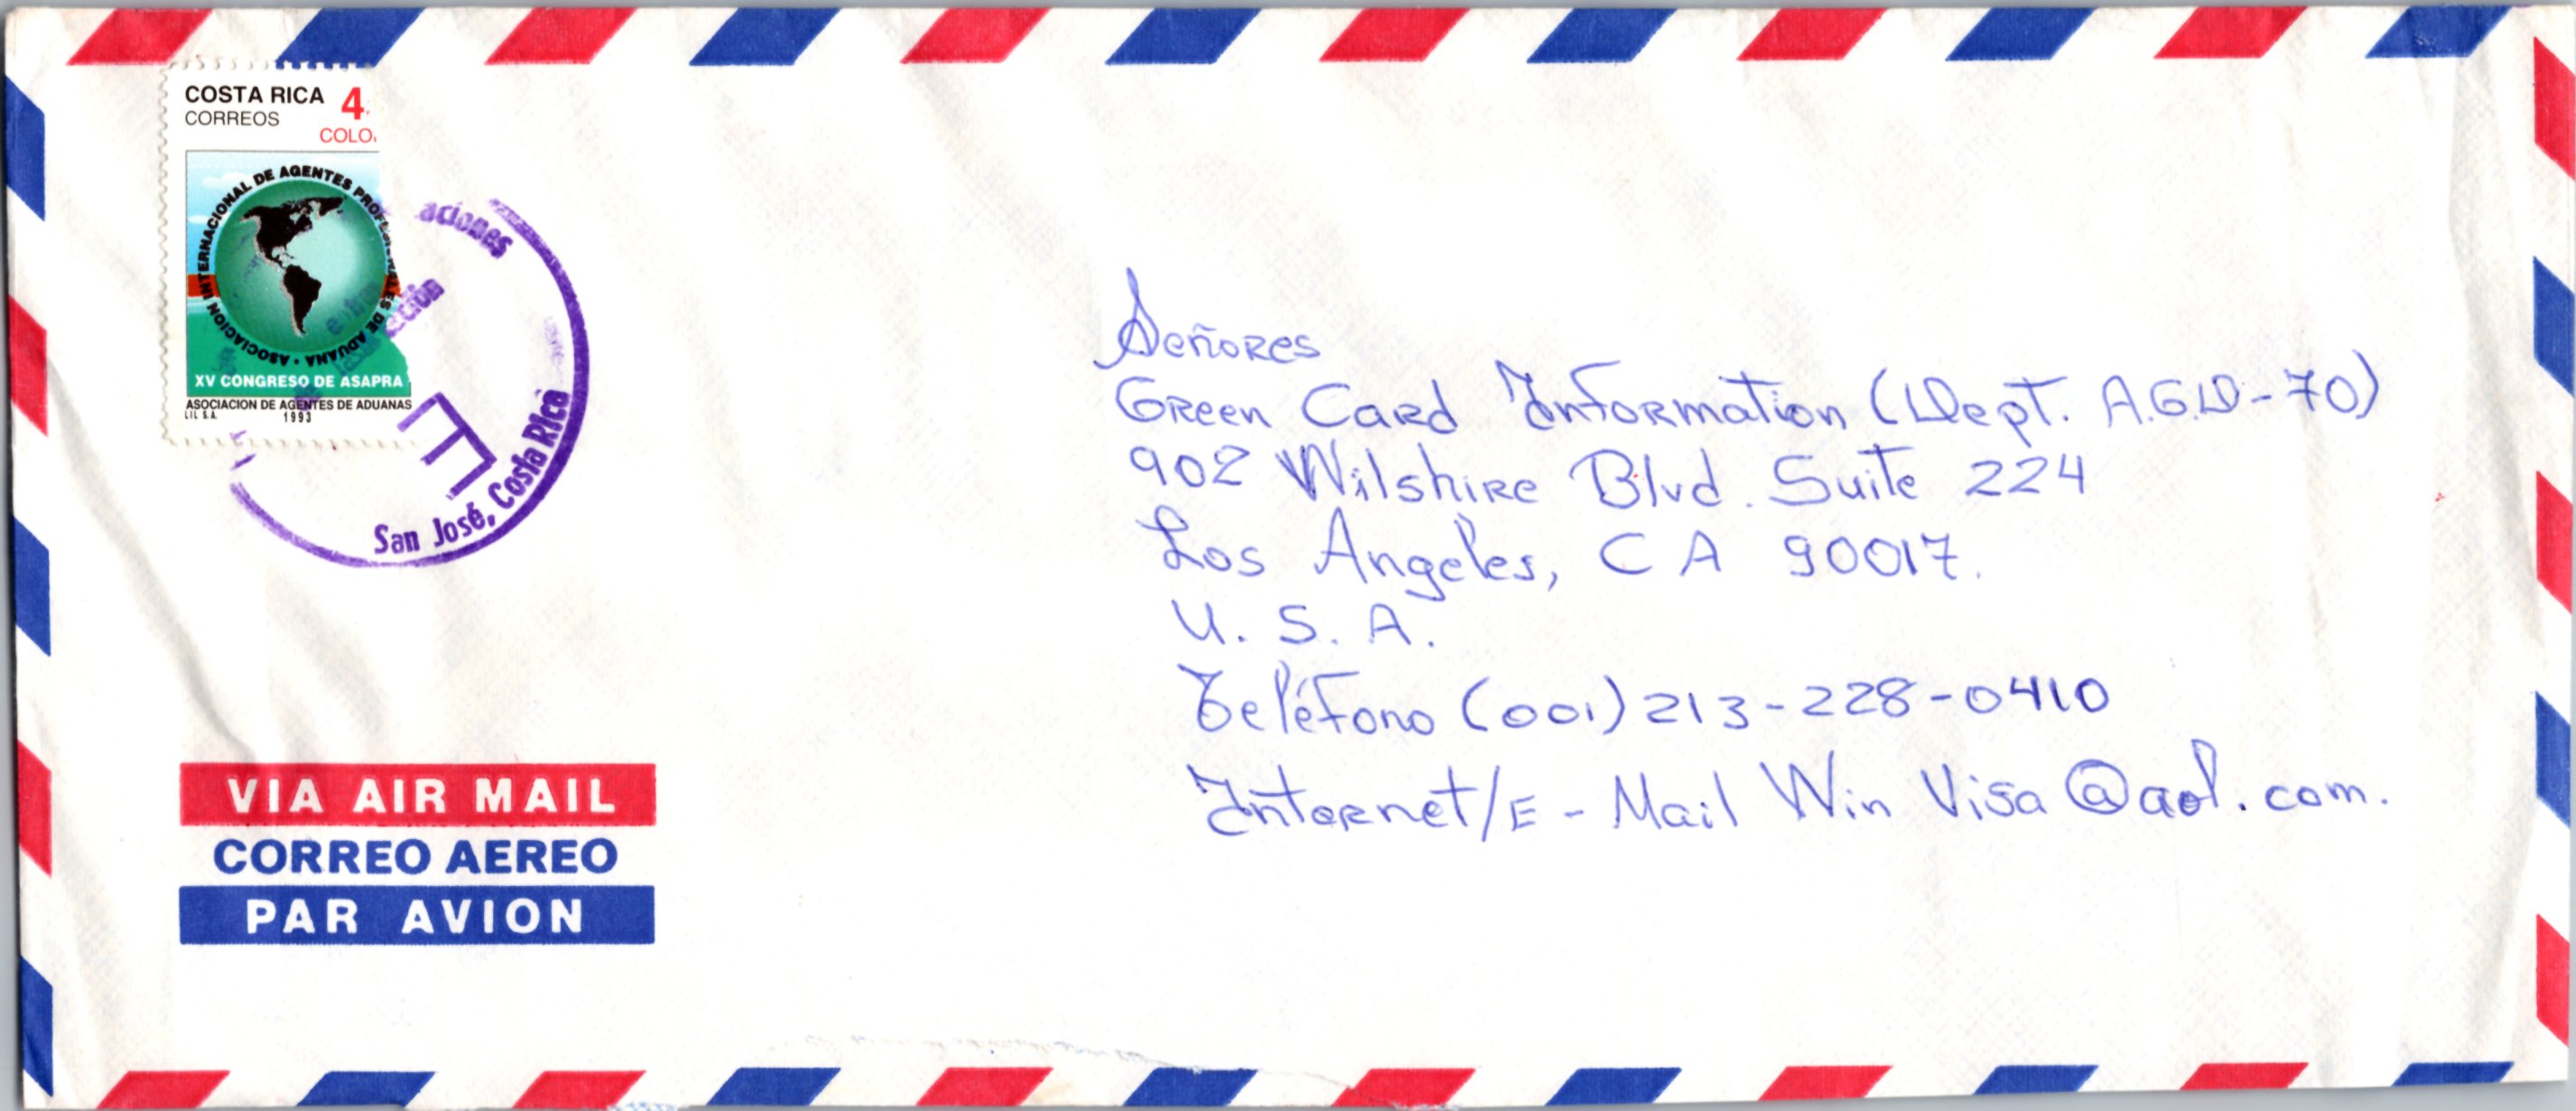 COSTA RICA 4
CORREOS
COLO
ASOCIACION INTERNACIONAL DE AGENTES PROFESIONALES DE ADUANA
XV CONGRESO DE ASAPRA
ASOCIACION DE AGENTES DE ADUANAS
LIL S.A. 1993
aciones
cción
San José, Costa Rica
Señores
Green Card Information (Dept. A.G.D-70)
902 Wilshire Blvd. Suite 224
Los Angeles, CA 90017.
U. S. A.
Teléfono (001) 213-228-0410
Internet/E-Mail Win Visa @aol.com.
VIA AIR MAIL
CORREO AEREO
PAR AVION